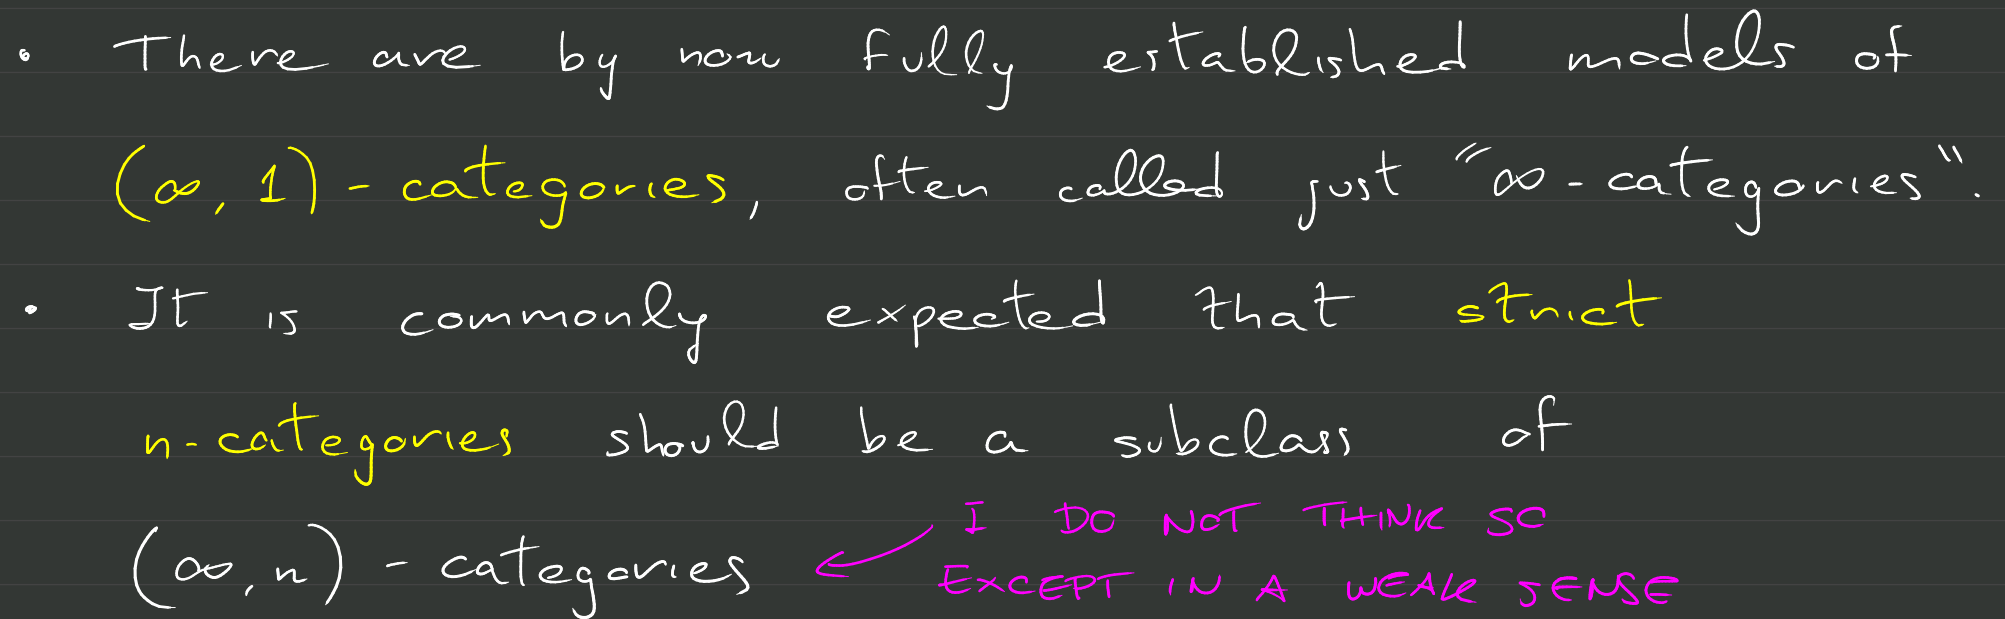 • There are by now fully established models of
(∞, 1)-categories, often called just "∞-categories".
• It is commonly expected that strict
n-categories should be a subclass of
(∞, n)-categories
I DO NOT THINK SO
EXCEPT IN A WEAK SENSE